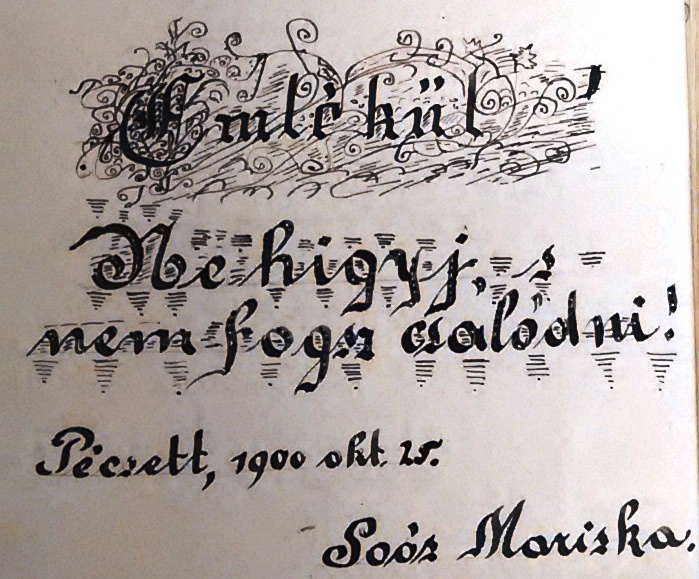 Emlékül
Ne higyj, s
nem fogsz csalódni!
Pécsett, 1900 okt. 25.
Soós Mariska.